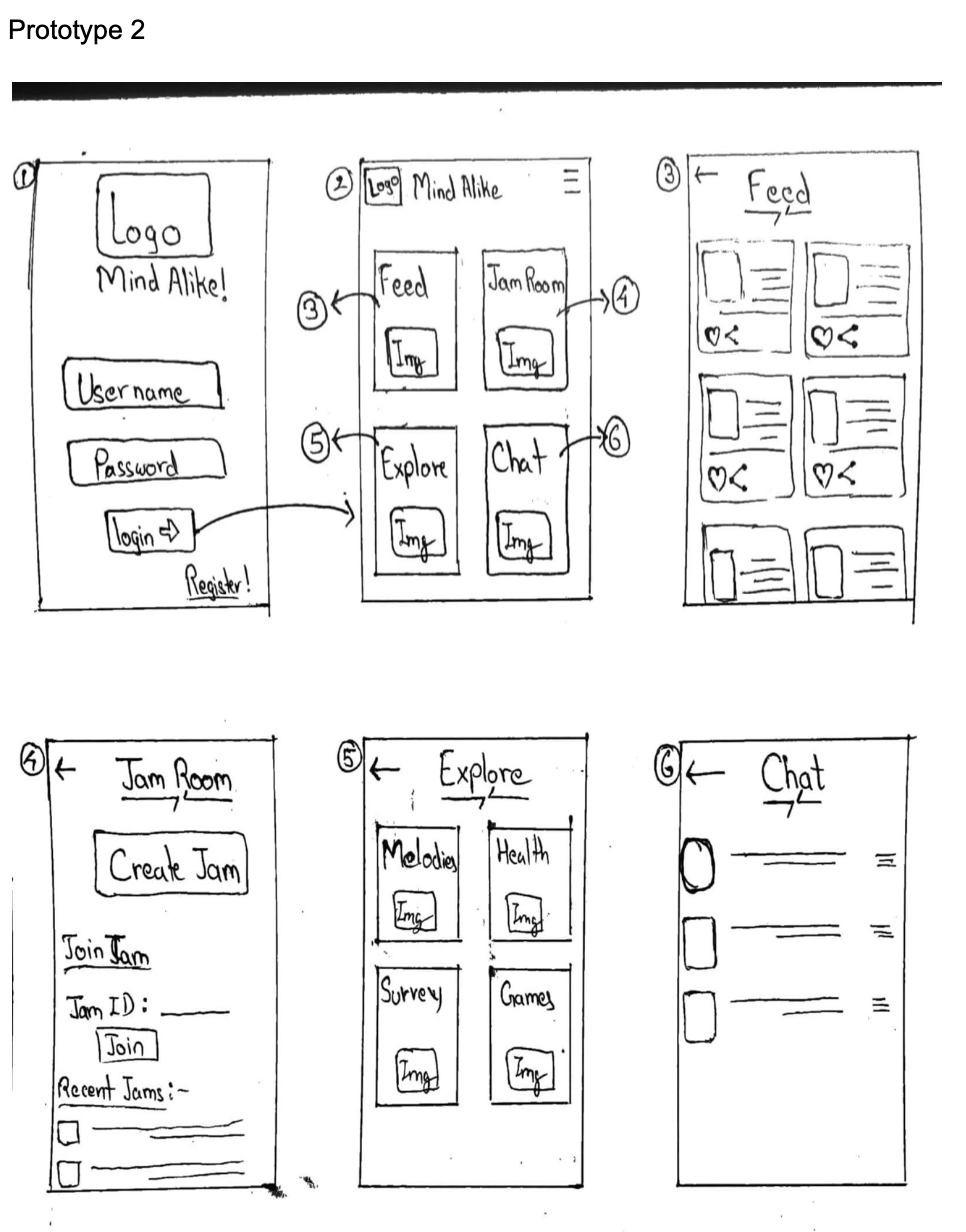 Prototype 2
1
Logo
Mind Alike!
Username
Password
login
Register!
2
Logo Mind Alike
Feed
Img
3
Jam Room
Img
4
Explore
Img
5
Chat
Img
6
3
Feed
4
Jam Room
Create Jam
Join Jam
Jam ID:
Join
Recent Jams:-
5
Explore
Melodies
Img
Health
Img
Survey
Img
Games
Img
6
Chat